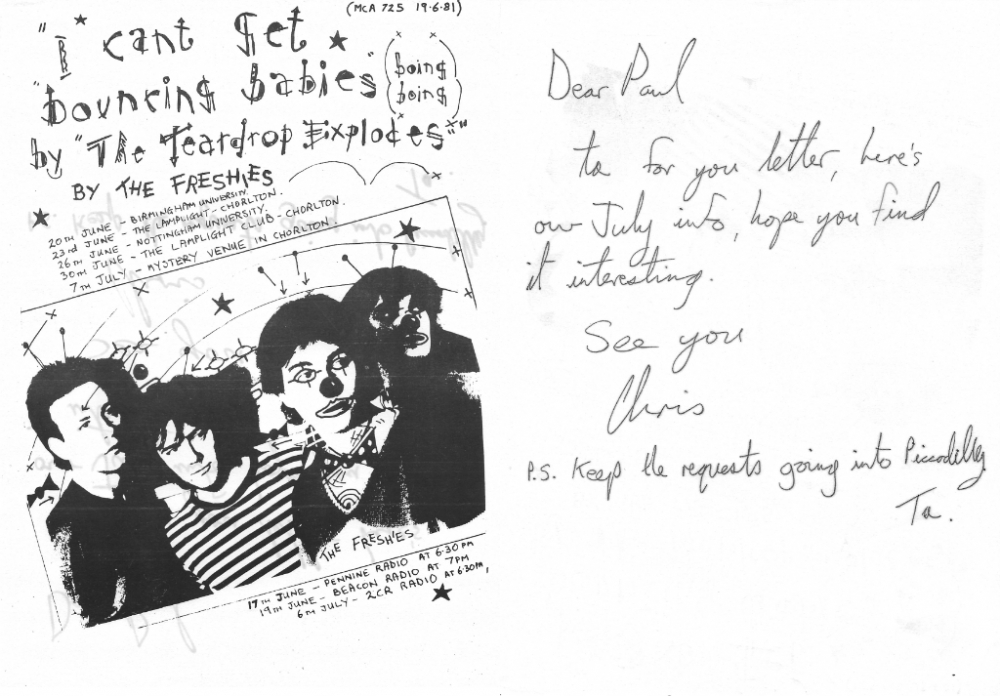 (MCA 725 19·6·81)
"I cant get
"bouncing babies"
by "The Teardrop Explodes""
(boing
boing)
BY THE FRESHIES
20TH JUNE - BIRMINGHAM UNIVERSITY.
23rd JUNE - THE LAMPLIGHT - CHORLTON.
26TH JUNE - NOTTINGHAM UNIVERSITY.
30TH JUNE - THE LAMPLIGHT CLUB - CHORLTON.
7TH JULY - MYSTERY VENUE IN CHORLTON
THE FRESHIES
17TH JUNE - PENNINE RADIO AT 6·30PM
19TH JUNE - BEACON RADIO AT 7PM
6TH JULY - 2CR RADIO AT 6:30PM,
Dear Paul
ta for you letter, here's
our July info, hope you find
it interesting.
See you
Chris
P.S. Keep the requests going into Piccadilly
Ta.